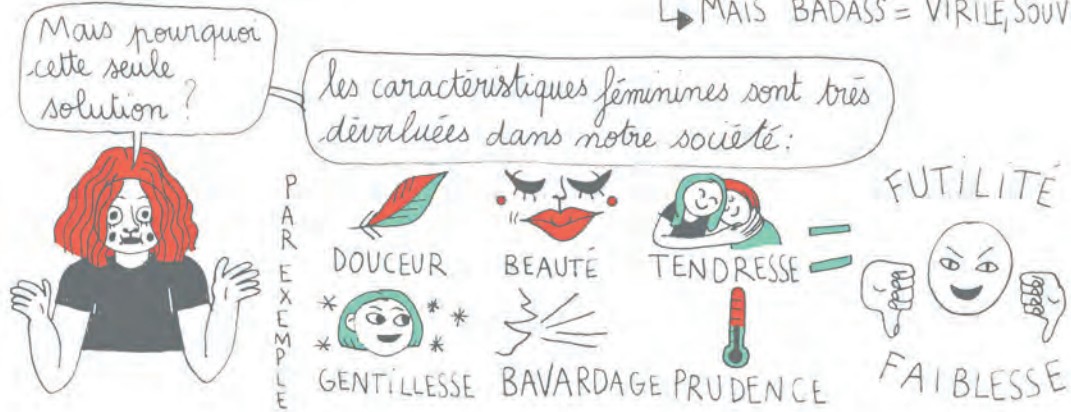 ↳ MAIS BADASS = VIRILE, SOUV
Mais pourquoi
cette seule
solution ?
les caractéristiques féminines sont très
dévaluées dans notre société :
PAR EXEMPLE
DOUCEUR
BEAUTÉ
TENDRESSE
=
GENTILLESSE
BAVARDAGE
PRUDENCE
FUTILITÉ
FAIBLESSE